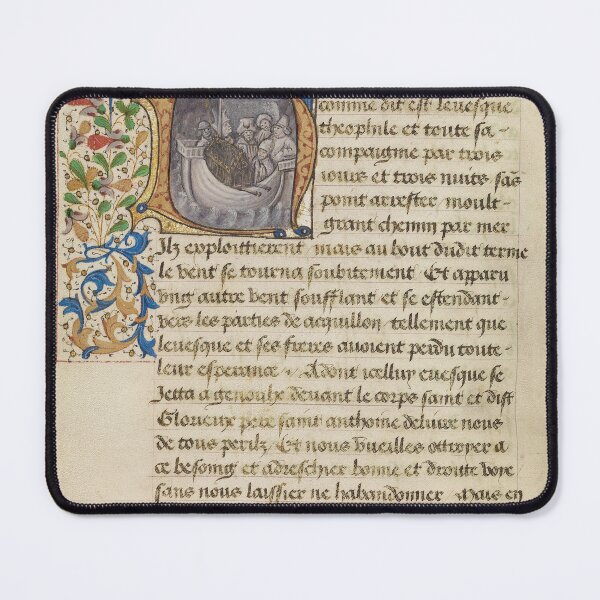 comme dit est levesque
theophile et toute sa
compaignie par trois
jours et trois nuits sãs
point arrester moult
grant chemin par mer
Ilz exploittierent mais au bout dudit terme
le vent se tourna soubitement Et apparu
vng autre vent soufflant et se estendant
vers les parties de acquillon tellement que
levesque et ses freres avoient perdu toute
leur esperance. Adont icelluy evesque se
Jetta a genoulx devant le corps saint et dist
Glorieux pere saint anthoine delivre nous
de tous perilz Et nous vueilles ottroyer a
ce besoing et adreschier bonne et droitte voye
sans nous laissier ne habandonner Mais en